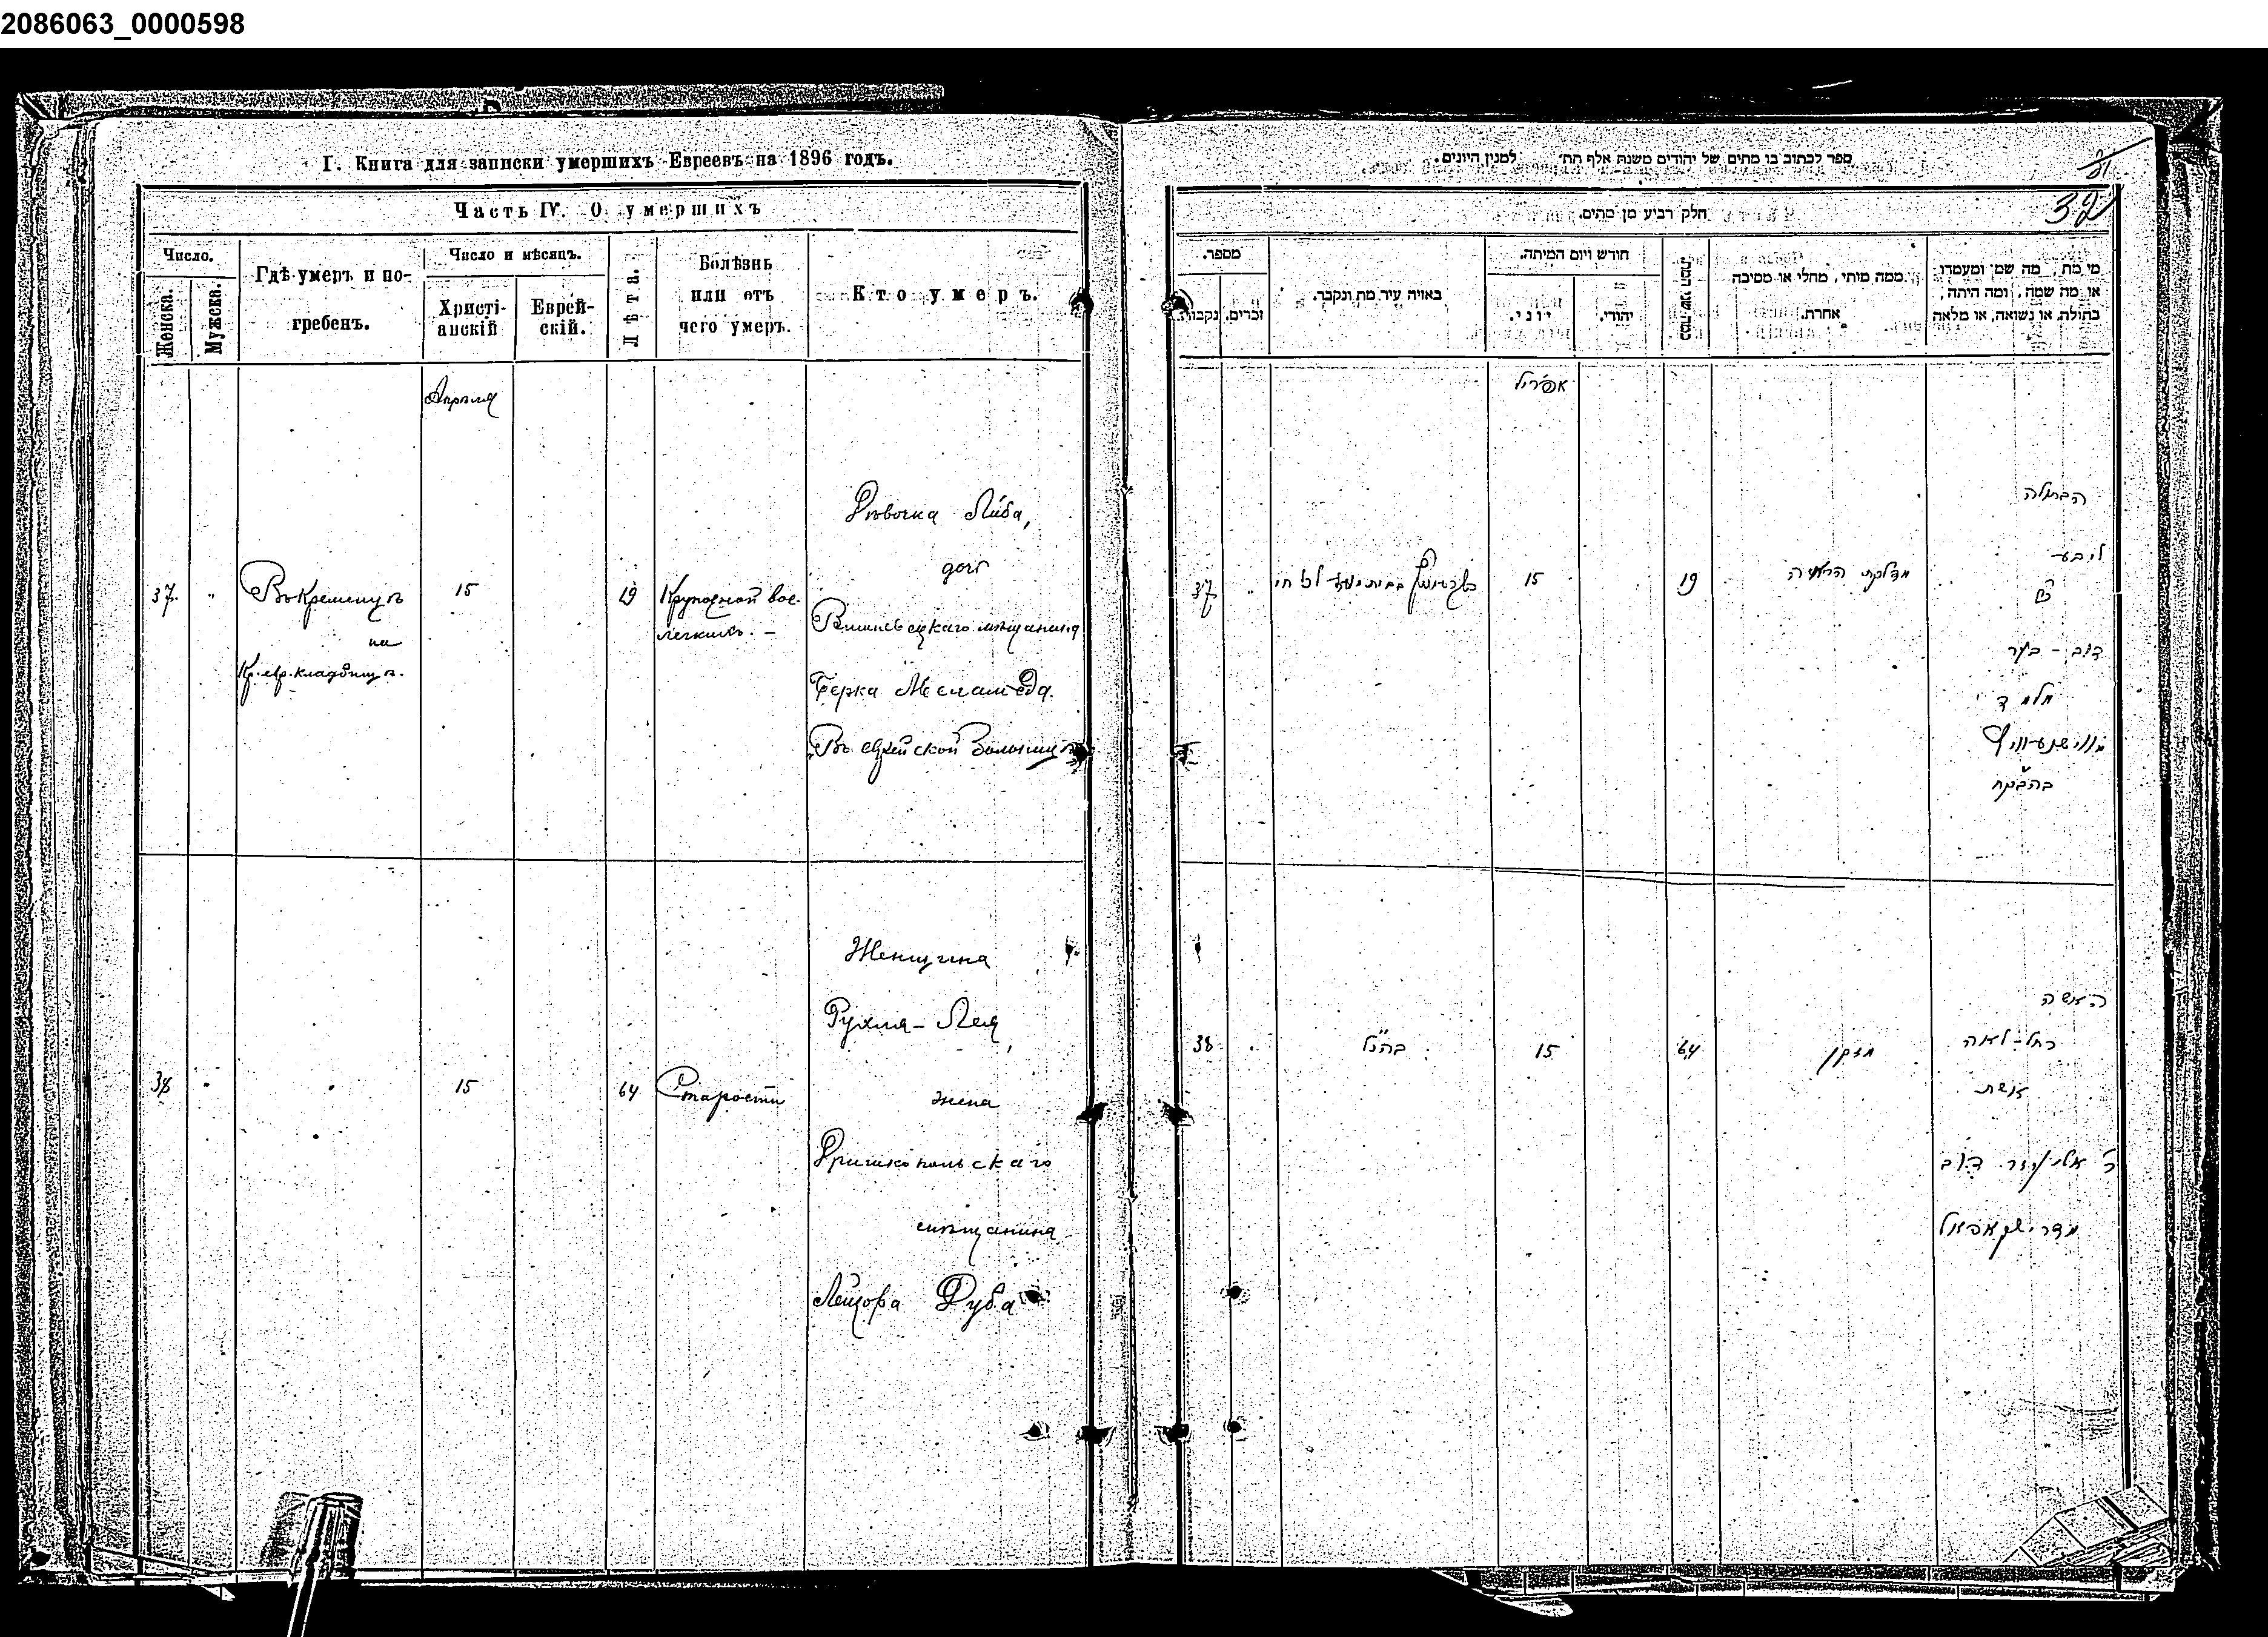 2086063_0000598
I. Книга для записки умершихъ Евреевъ на 1896 годъ.
Часть IV. О умершихъ
Число.
Женска.
Мужска.
Гдѣ умеръ и по-
гребенъ.
Число и мѣсяцъ.
Христі-
анскій
Еврей-
скій.
Лѣта.
Болѣзнь
или отъ
чего умеръ.
Кто умеръ.
Апрѣля
37.
"
Въ Кременцѣ
на
Кр. евр. кладбищѣ.
15
19
Крупозной вос.
легкихъ. –
Дѣвочка Либа,
дочь
Вишневецкаго мѣщанина
Берка Меламеда.
Въ еврейской больницѣ
38
15
64
Старости
Женщина
Рухля-Лея,
жена
мѣщанина
Лейзора Дуба
ספר לכתוב בו מתים של יהודים משנת אלף תת' למנין היונים.
31
32
חלק רביע מן מתים.
מספר.
זכרים.
נקבות.
באיזה עיר מת ונקבר.
חודש ויום המיתה.
יוני.
יהודי.
ממה מותי, מחלי או מסיבה
אחרת.
מי מת, מה שמו ומעמדו
או מה שמה, ומה היתה,
בתולה, או נשואה, או מלאה
אפריל
37
"
15
19
מדלקת הריאה
הבתולה
ליבע
בת
דוב - בער
מלמד
38
בהנ"ל
15
64
מזקן
האשה
רחל-לאה
אשת
ר' אליעזר דוב